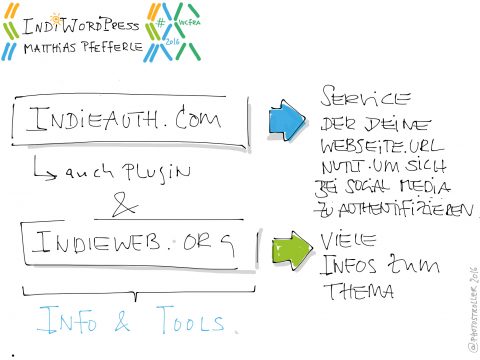 INDIWORDPRESS
MATTHIAS PFEFFERLE
# WCFRA
2016
INDIEAUTH.COM
auch PLUGIN
&
INDIEWEB.ORG
INFO & TOOLS.
SERVICE
DER DEINE
WEBSEITE.URL
NUTZT.UM SICH
BEI SOCIAL MEDIA
ZU AUTHENTIFIZIEREN
VIELE
INFOS ZUM
THEMA
@PHOTOSTROLLER 2016